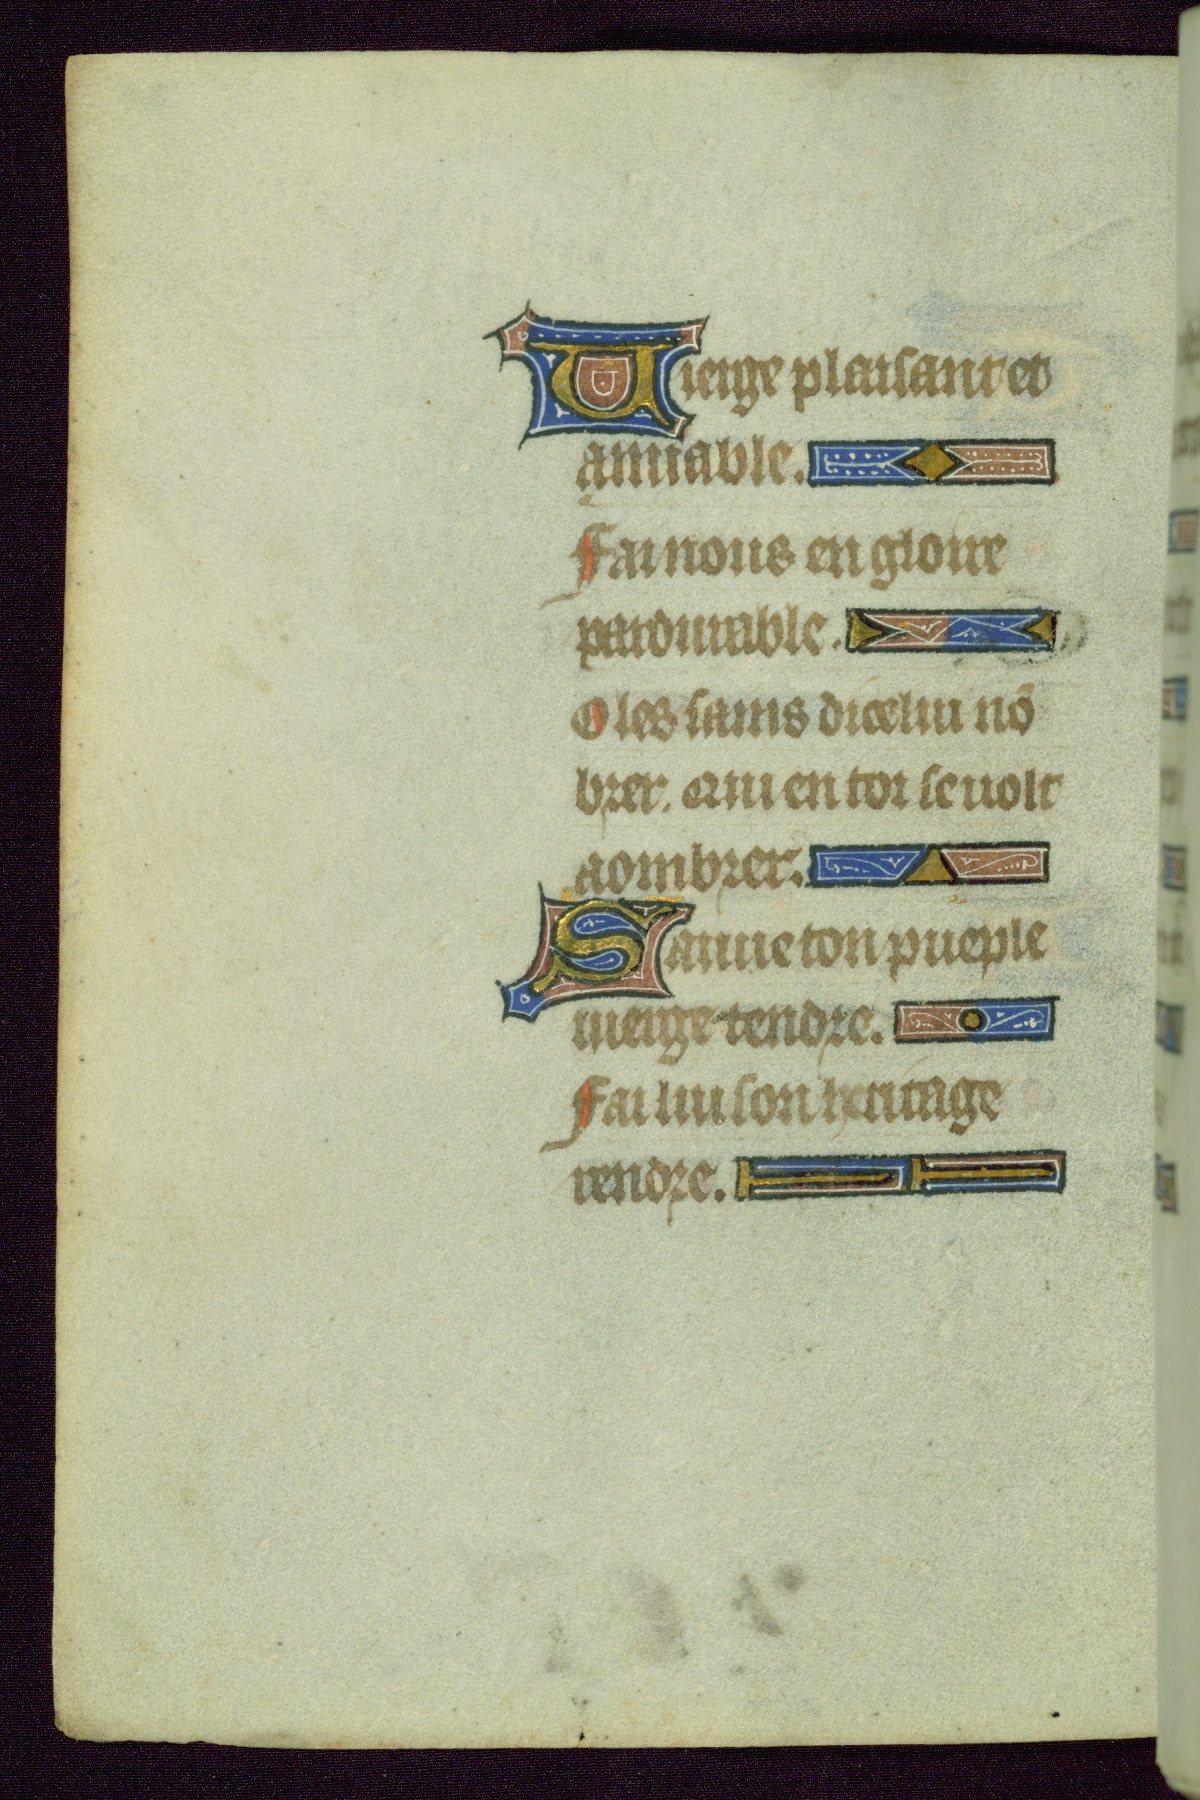 Uierge plaisant et
amiable.
Fai nous en gloire
pardurable.
O les sains diceliu nō
brer. Qui en toi se uolt
aombrer.
Sauue ton pueple
uierge tendre.
Fai liu son heritage
rendre.